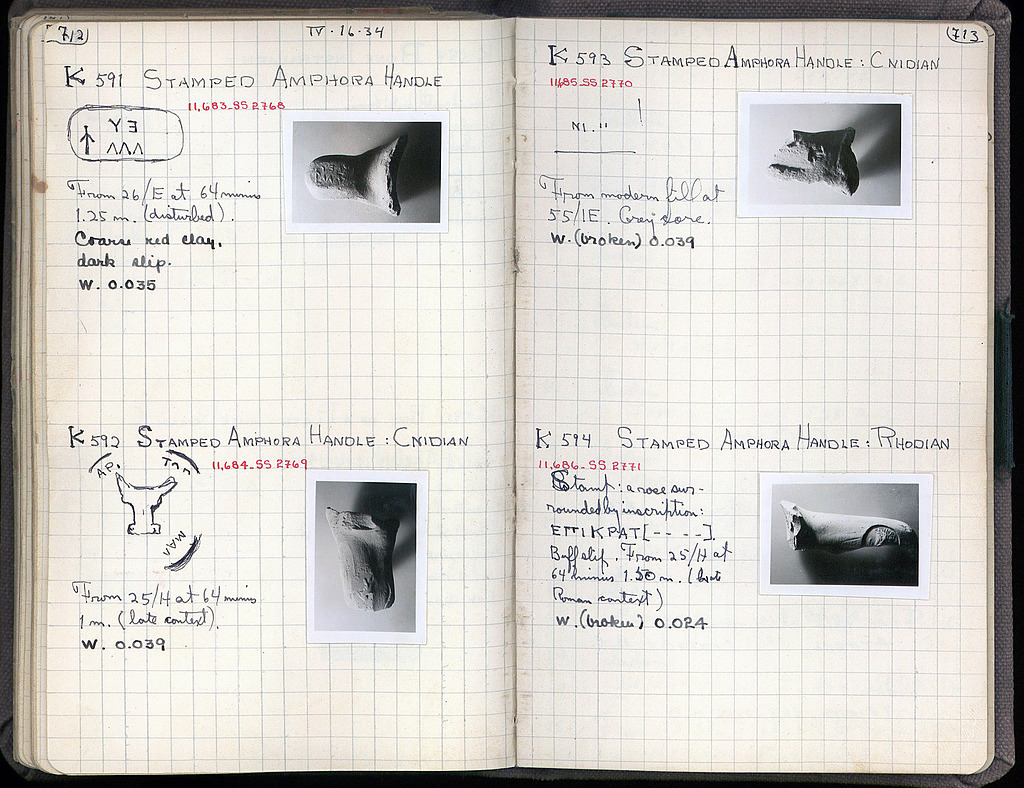 712
IV.16.34
K 591 STAMPED AMPHORA HANDLE
11,683-SS 2768
From 26/E at 64 minus
1.25 m. (disturbed).
Coarse red clay,
dark slip.
W. 0.035
K 592 STAMPED AMPHORA HANDLE : CNIDIAN
11,684-SS 2769
ΑΡ.
From 25/H at 64 minus
1 m. (late context).
W. 0.039
713
K 593 STAMPED AMPHORA HANDLE : CNIDIAN
11,685-SS 2770
From modern fill at
55/ΙΕ. Grey core.
W. (broken) 0.039
K 594 STAMPED AMPHORA HANDLE : RHODIAN
11,686-SS 2771
Stamp: a rose sur-
rounded by inscription:
ΕΠΙΚΡΑΤ[-- --].
Buff slip. From 25/H at
64 minus 1.50 m. (late
Roman context)
W. (broken) 0.024